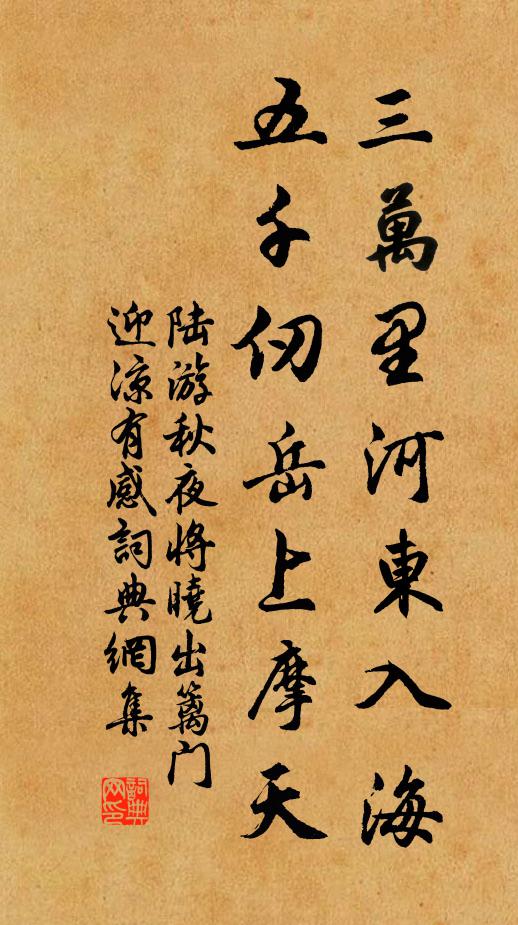 三萬里河東入海
五千仞岳上摩天
陆游秋夜将曉出籬门
迎凉有感詞典網集
詞典
网印